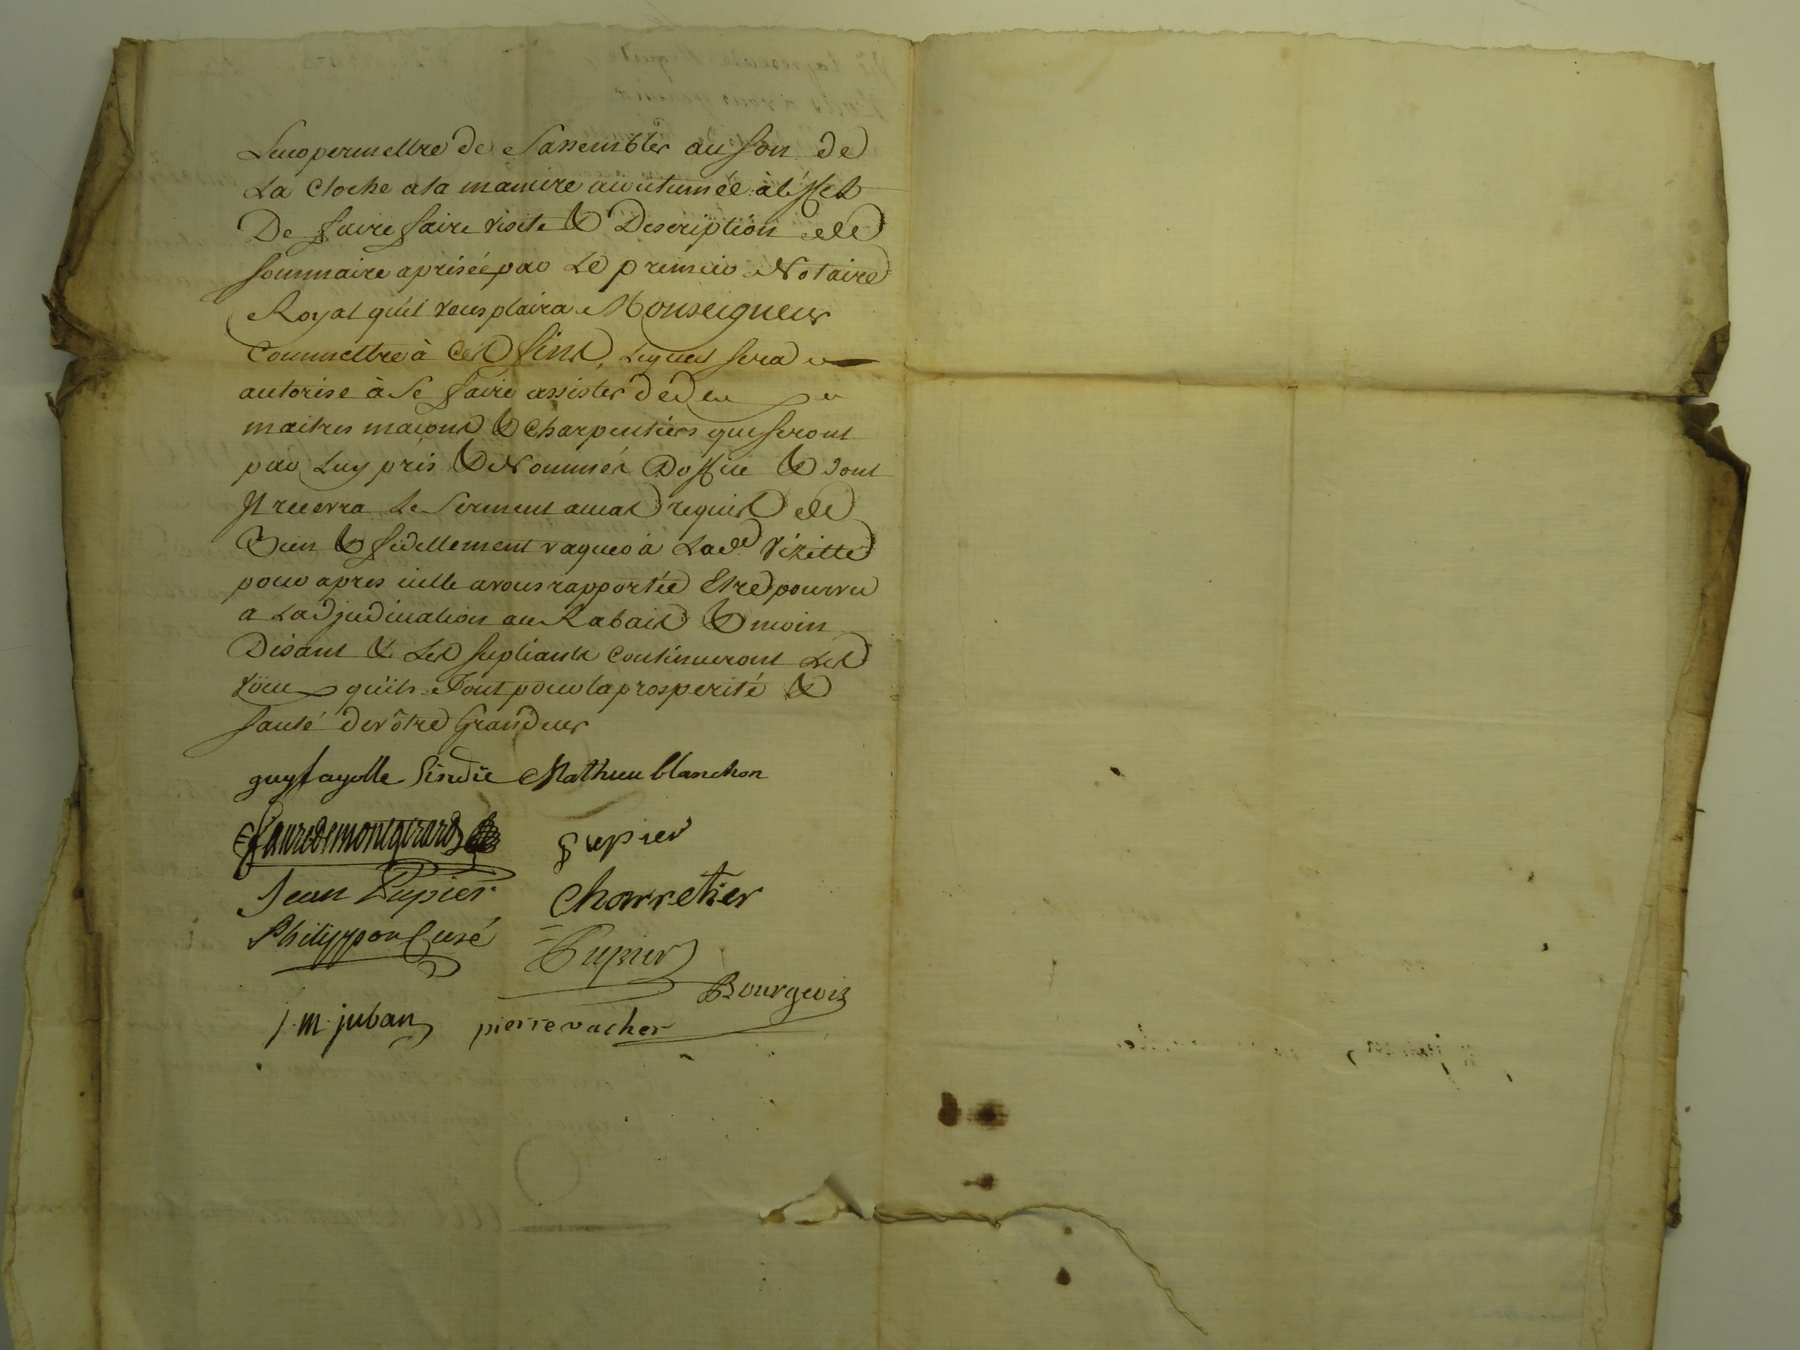 Leur permettre de Sassembler au son de
La Cloche a la maniere accutumée à léffet
De faire faire visite & Description et
sommaire aprisée par Le premier Notaire
Royal quil vous plaira Monseigneur
Commettre à Ces fins, Lequel sera
autorisé à Se faire assister de deux
maitres maçons & Charpentiers qui seront
par Luy pris & Nommés Doffice & dont
Il recevra Le Serment au cas requis de
Bien & fidellement vaquer à Lade. Vizitte
pour apres icelle a vous rapportée Etre pourvu
a Ladjudication au Rabais & moin
Disant & Les supliants Continueront Les
vœux quils Font pour la prosperité &
santé de vôtre Grandeur
guy fayolle Sindic Mathieu blanchon
fauredemontgirard pupier
Jean Pupier Charretier
Philippon Curé Pupier
Bourgeois
j. m. juban pierre vacher